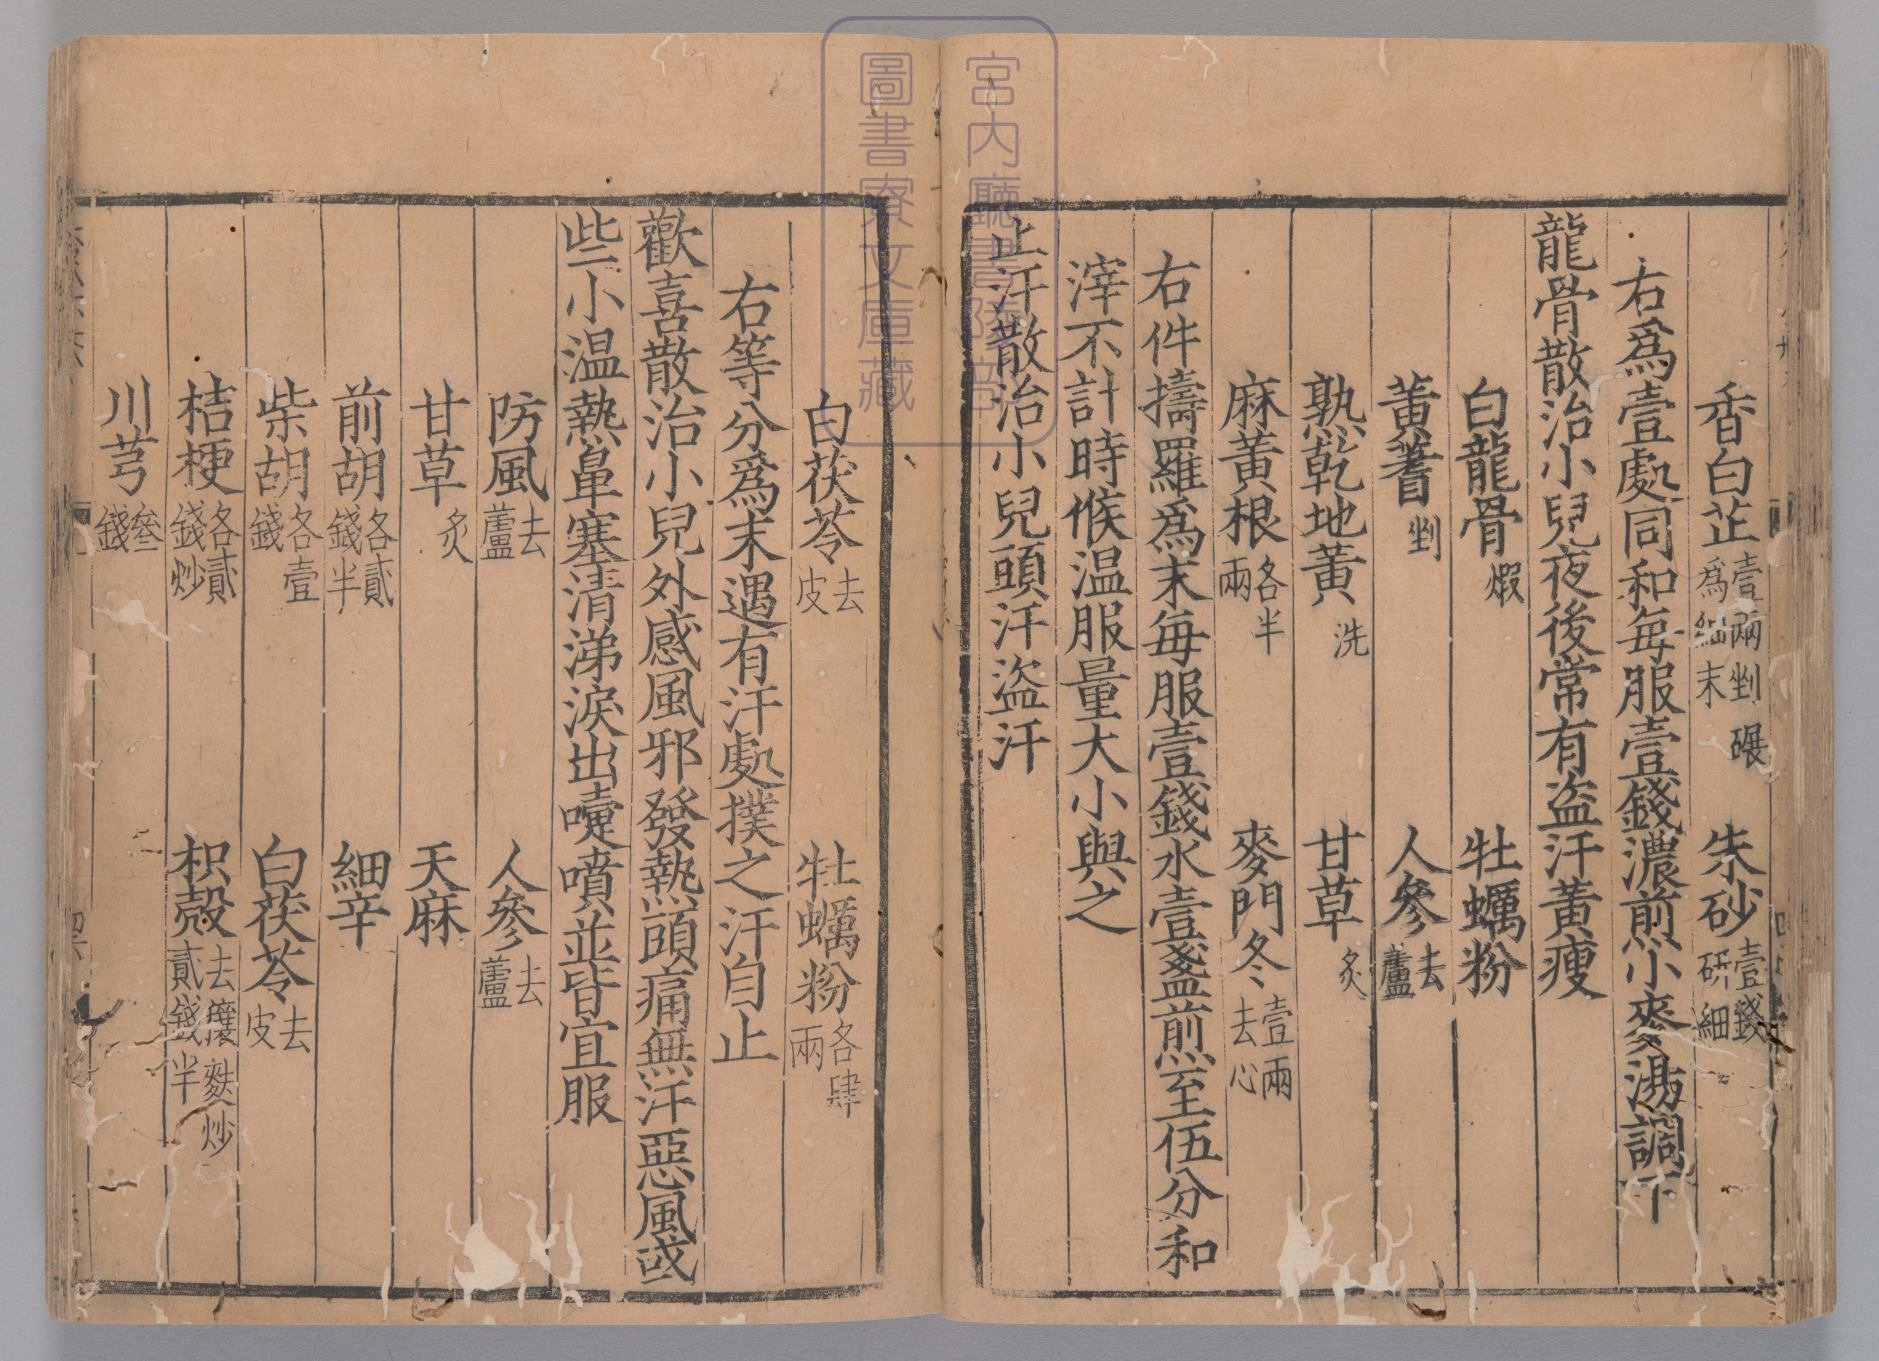 香白芷壹兩剉碾爲細末　朱砂壹錢研細
右爲壹處同和每服壹錢濃煎小麥湯調下
龍骨散治小兒夜後常有盜汗黃瘦
白龍骨煅　牡蠣粉
黃耆剉　人參去蘆
熟乾地黃洗　甘草炙
麻黃根各半兩　麥門冬壹兩去心
右件擣羅爲末每服壹錢水壹盞煎至伍分和
滓不計時候溫服量大小與之
止汗散治小兒頭汗盜汗
白茯苓去皮　牡蠣粉各肆兩
右等分爲末遇有汗處撲之汗自止
歡喜散治小兒外感風邪發熱頭痛無汗惡風或
些小温熱鼻塞清涕淚出嚏噴並皆宜服
防風去蘆　人參去蘆
甘草炙　天麻
前胡各貳錢半　細辛
柴胡各壹錢　白茯苓去皮
桔梗各貳錢炒　枳殼去穰麩炒貳錢半
川芎叄錢
宮內廳書陵部
圖書寮文庫藏